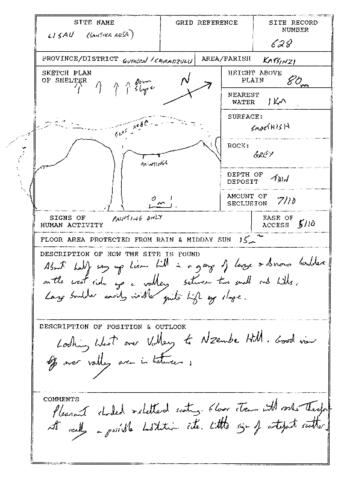 SITE NAME
GRID REFERENCE
SITE RECORD NUMBER
LISAU
628
PROVINCE/DISTRICT
CHIRADZULU
AREA/PARISH
SKETCH PLAN OF SHELTER
Down Slope
N
HEIGHT ABOVE PLAIN 80m
NEAREST WATER 1Km
SURFACE:
SMOOTHISH
ROCK:
GREY
PAINTINGS
0 1
m
DEPTH OF DEPOSIT THIN
AMOUNT OF SECLUSION 7/10
SIGNS OF HUMAN ACTIVITY PAINTING ONLY
EASE OF ACCESS 5/10
FLOOR AREA PROTECTED FROM RAIN & MIDDAY SUN 15m²
DESCRIPTION OF HOW THE SITE IS FOUND
About half way up Lisau hill in a group of large boulders
on the west side up a valley between two small hills.
Large boulder easily visible quite high up slope.
DESCRIPTION OF POSITION & OUTLOOK
Looking West over Valley to Nzembe Hill. Good view
over valley area in between.
COMMENTS
Pleasant shaded & sheltered. Floor strewn with rocks Therefore
not really a possible habitation site. Little sign of artefact scatter.